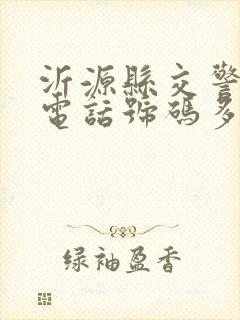 沂源縣交警
電話號碼多
绿袖盈香